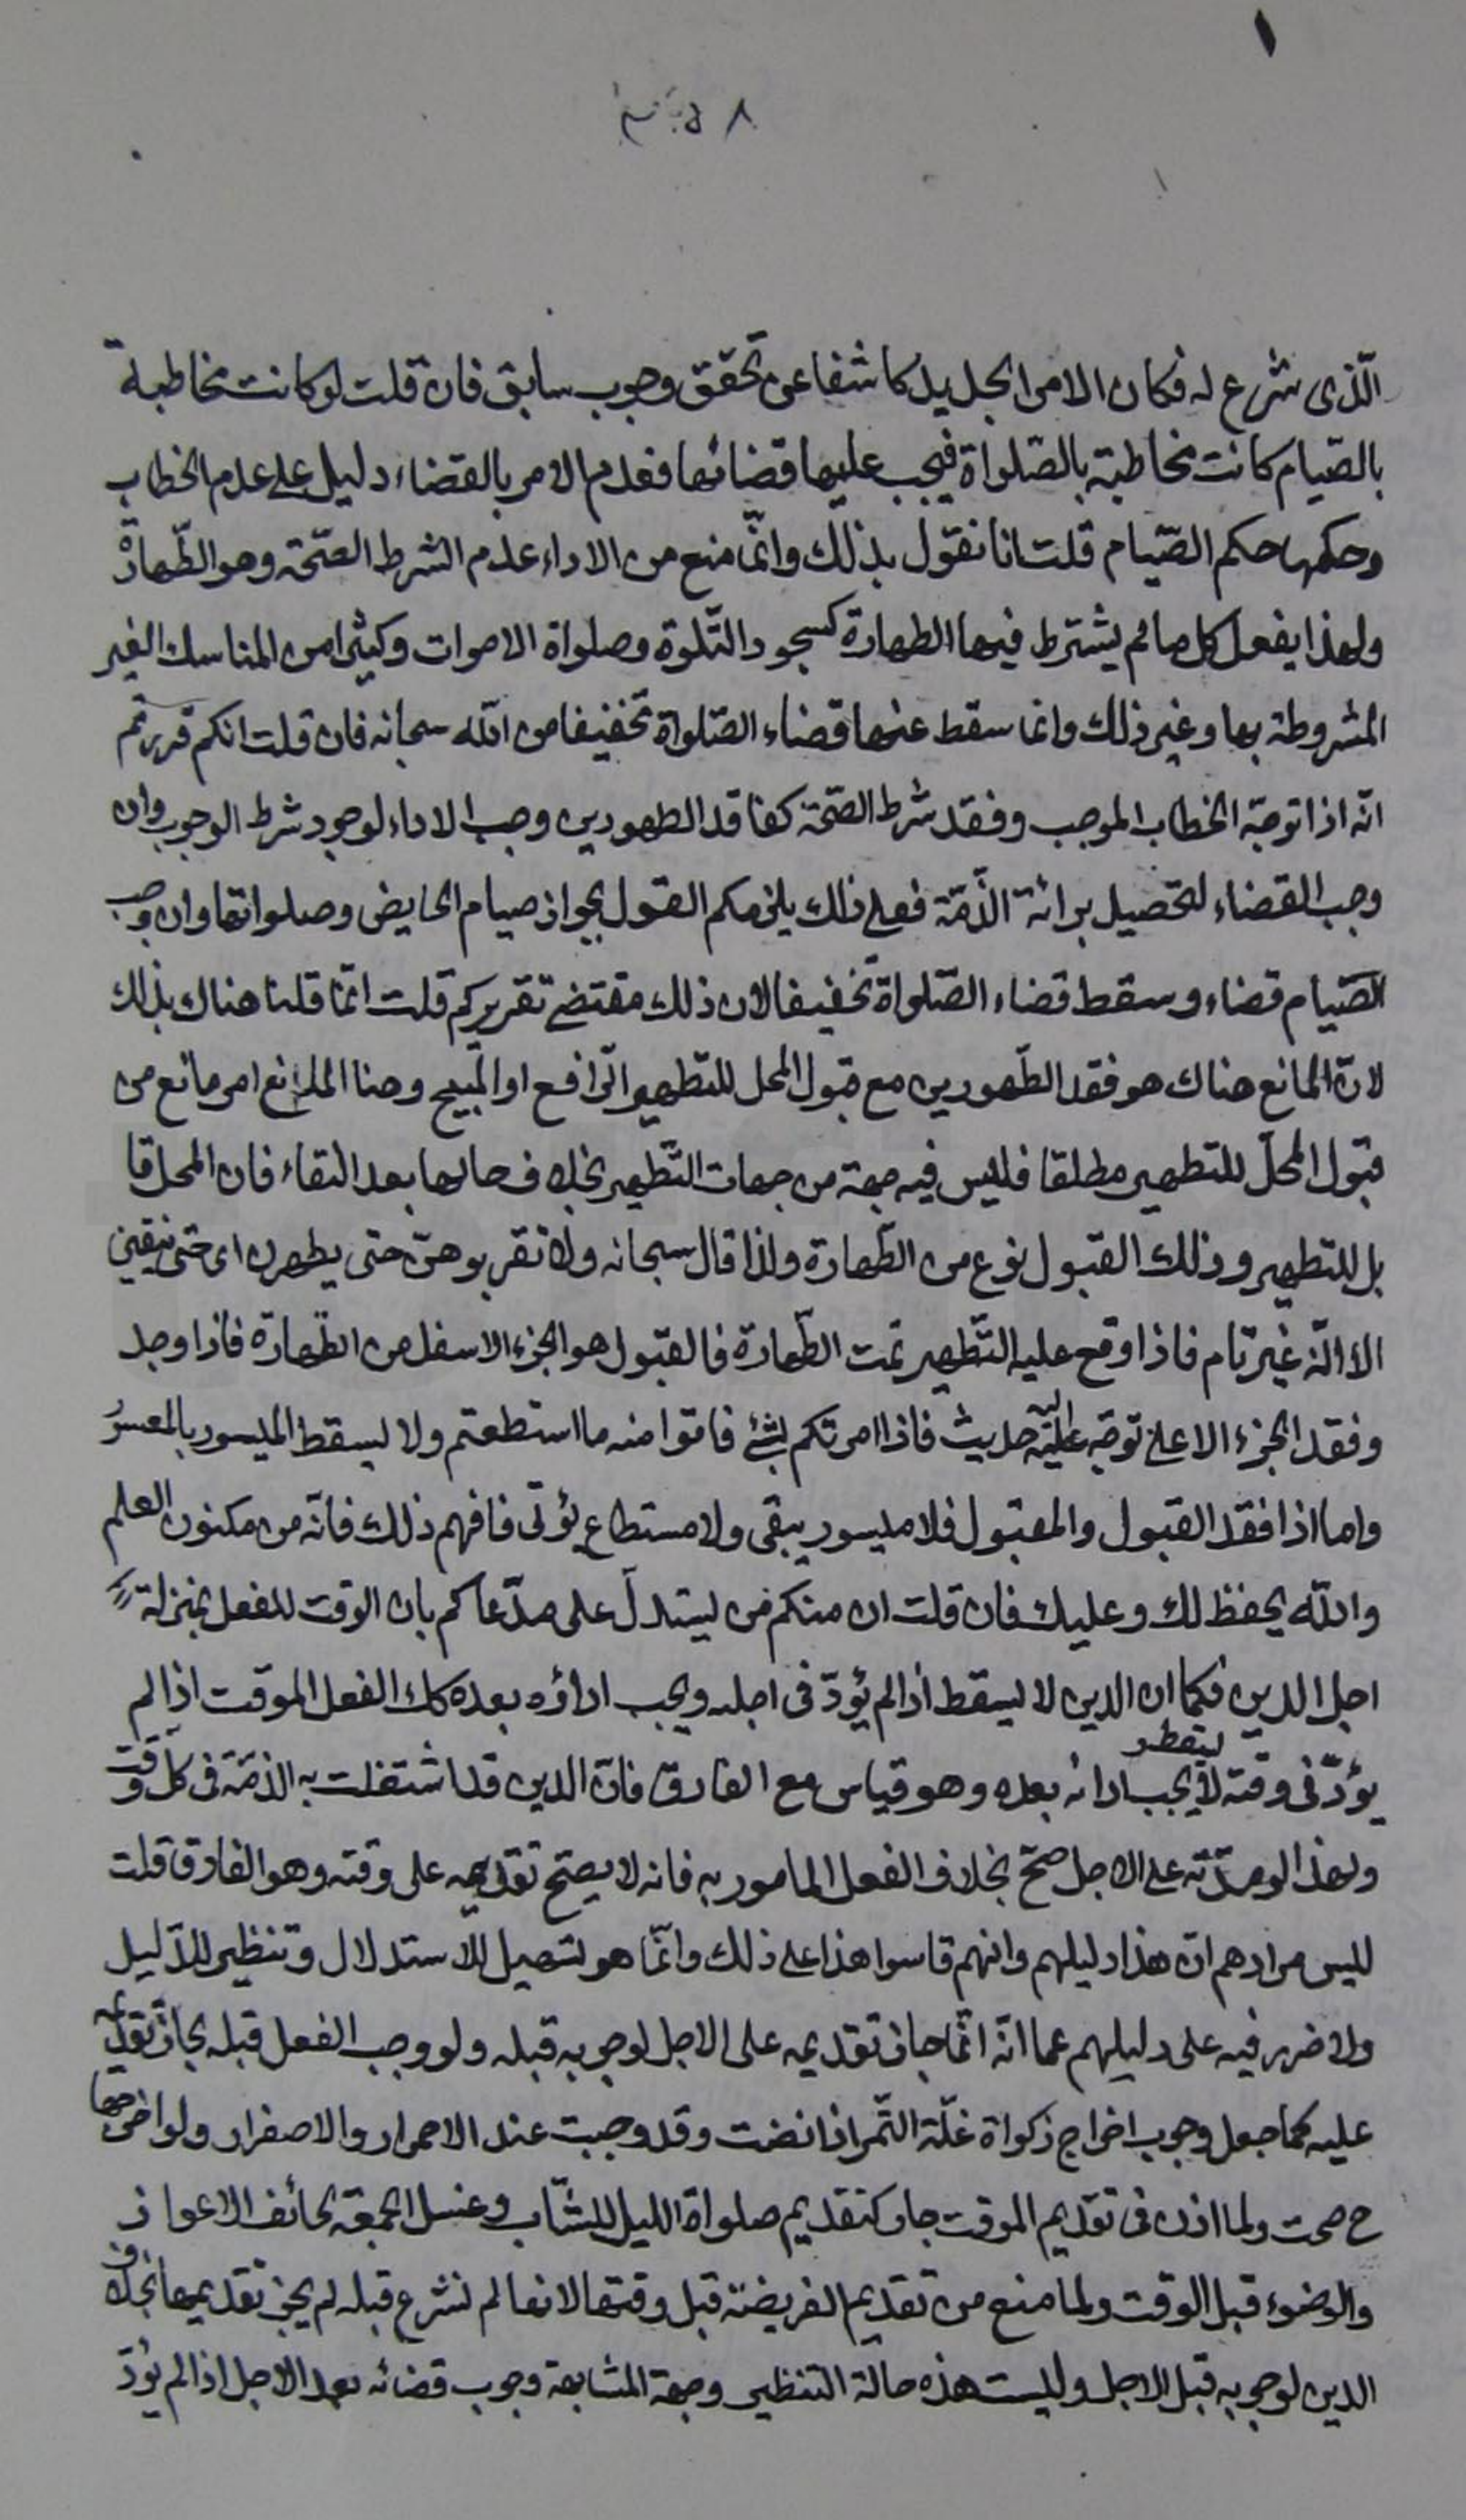 الّذى شرع له فكان الامر الجديد كاشفا عن تحقق وجوب سابق فان قلت لو كانت مخاطبة
بالصّيام كانت مخاطبة بالصّلواة فيجب عليها قضائها فعدم الامر بالقضاء دليل على عدم الخطاب
وحكمها حكم الصّيام قلت انا نقول بذلك وانّما منع من الاداء عدم الشرط الصّحة وهو الطّهارة
ولهذا يفعل كل ما لم يشترط فيها الطهارة كسجود التّلوة وصلواة الاموات وكثيرا من المناسك الغير
المشروطة بها وغير ذلك وانما سقط عنها قضاء الصّلواة تخفيفا من الله سبحانه فان قلت انكم قررتم
انّه اذا توجّه الخطاب الموجب وفقد شرط الصّحّة كفاقد الطهورين وجب الاداء لوجود شرط الوجوب وان
وجب القضاء لتحصيل برائة الذّمّة فعلى ذلك يلزمكم القول بجواز صيام الحايض وصلواتها وان وجب
الصّيام قضاء وسقط قضاء الصّلواة تخفيفا لان ذلك مقتضى تقريركم قلت انّما قلنا هناك بذلك
لانّ المانع هناك هو فقد الطّهورين مع قبول المحل للتطهير الرّافع او المبيح وهنا المانع امر مانع من
قبول المحلّ للتطهير مطلقا فليس فيه جهة من جهات التّطهير بخلاف حالها بعد النقاء فان المحل قا
بل للتطهير وذلك القبول نوع من الطّهارة ولذا قال سبحانه ولا تقربوهنّ حتى يطهرن اى حتى ينقين
الا انّه غير تام فاذا وقع عليه التّطهير تمت الطّهارة فالقبول هو الجزء الاسفل من الطّهارة فاذا وجد
وفقد الجزء الاعلى توجّه اليه حديث فاذا امرتكم بشئ فاتوا منه ما استطعتم ولا يسقط الميسور بالمعسور
واما اذا فقد القبول والمقبول فلا ميسور يبقى ولا مستطاع يؤتى فافهم ذلك فانّه من مكنون العلم
والله يحفظ لك وعليك فان قلت ان منكم من يستدلّ على مدّعاكم بان الوقت للفعل بمنزلة
اجل الدين فكما ان الدين لا يسقط اذا لم يؤدّ فى اجله ويجب اداؤه بعده كك الفعل الموقت اذا لم
يؤدّ فى وقته لا يسقط يجب ادائه بعده وهو قياس مع الفارق فانّ الدين قد اشتغلت به الذمّة فى كل وقت
ولهذا لو قدّمه على الاجل صحّ بخلاف الفعل المامور به فانه لا يصحّ تقديمه على وقته وهو الفارق قلت
ليس مرادهم انّ هذا دليلهم وانهم قاسوا هذا على ذلك وانّما هو تسهيل للاستدلال وتنظير للدّليل
ولا ضرر فيه على دليلهم عما انّه انّما جاز تقديمه على الاجل لوجوبه قبله ولو وجب الفعل قبله لجاز تقديمه
عليه كما جعل وجوب اخراج زكواة غلّة التّمر اذا نضت وقد وجبت عند الاحمرار والاصفرار ولو اخرجها
ح صحت ولما اذن فى تقديم الموقت جاز كتقديم صلواة الليل للشّاب وغسل الجمعة لخائف الاعواز
والوضوء قبل الوقت ولما منع من تقديم الفريضة قبل وقتها لانها لم تشرع قبله لم يجز تقديمها بخلاف
الدين لوجوبه قبل الاجل وليست هذه حالة التنظير وجهة المشابهة وجوب قضائه بعد الاجل اذا لم يؤدّ